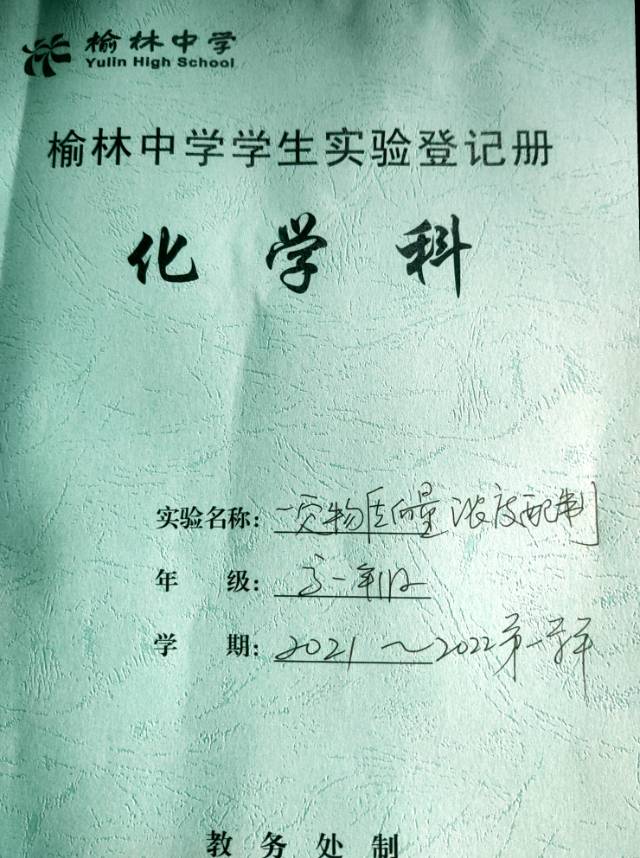 榆林中学
Yulin High School
榆林中学学生实验登记册
化学科
实验名称：一定物质的量浓度配制
年级：高一年级
学期：2021～2022第一学年
教务处制